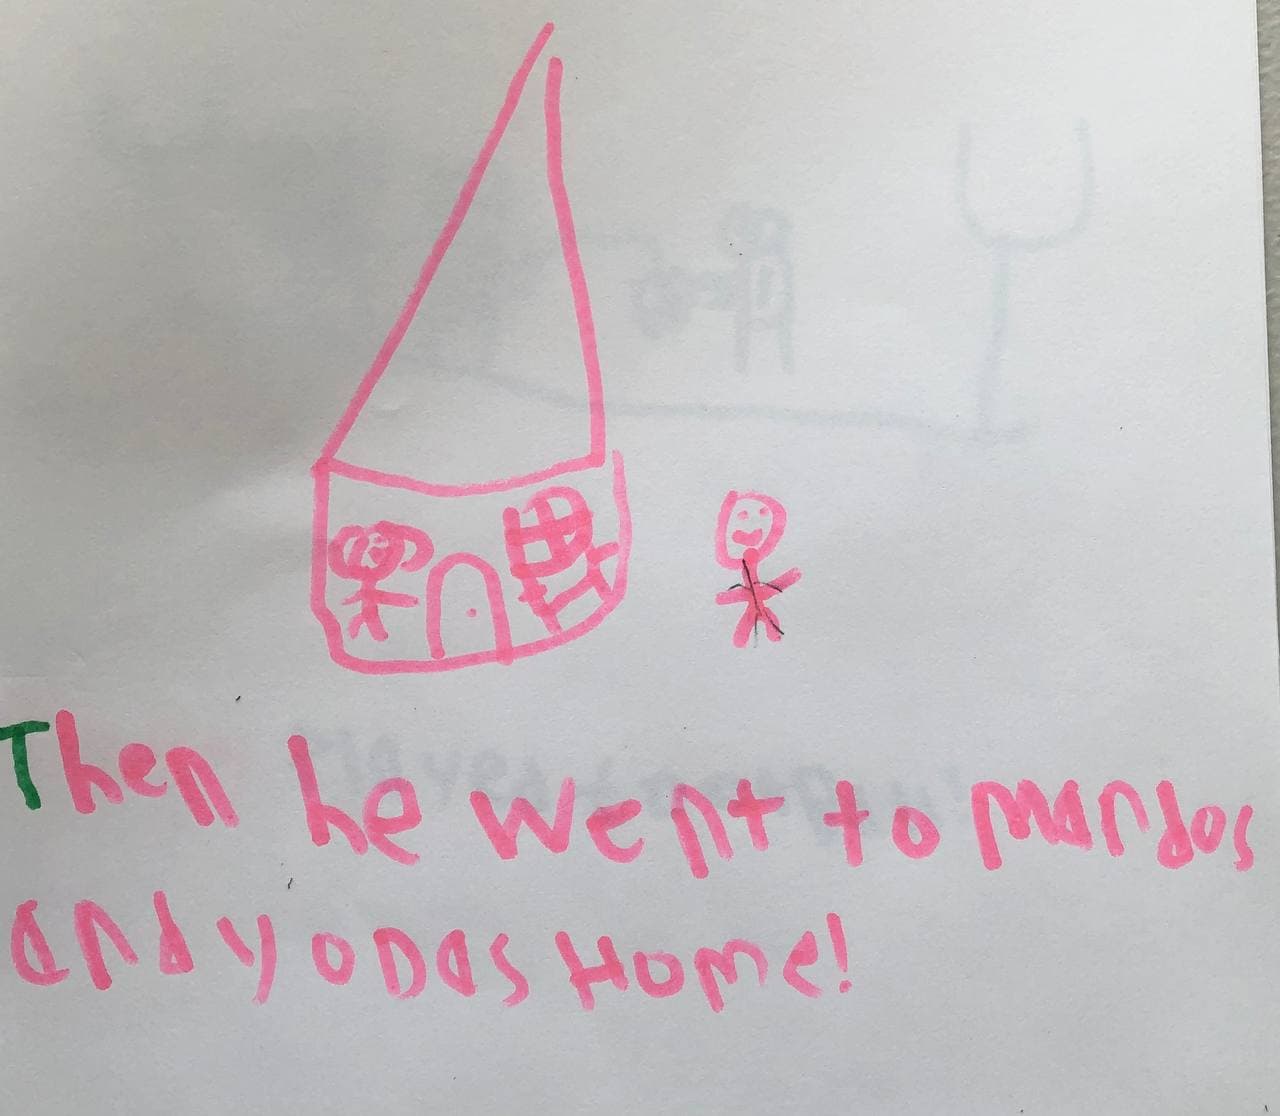 Then he went to mandos
and yoDas Home!